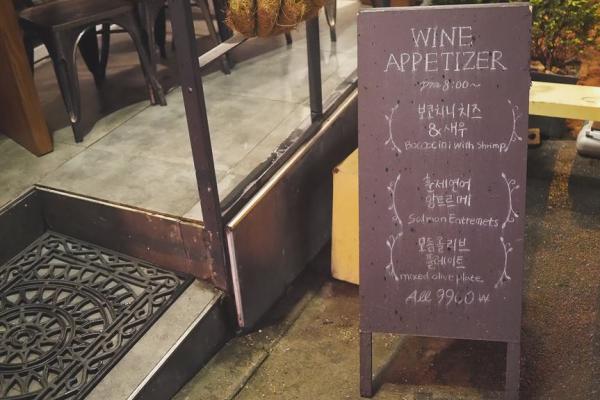 WINE
APPETIZER
pm 8:00~
보코치니 치즈
& 새우
Bococcini with shrimp
훈제연어
앙트르메
Salmon Entremets
모듬올리브
플레이트
mixed olive plate
All 9900 w